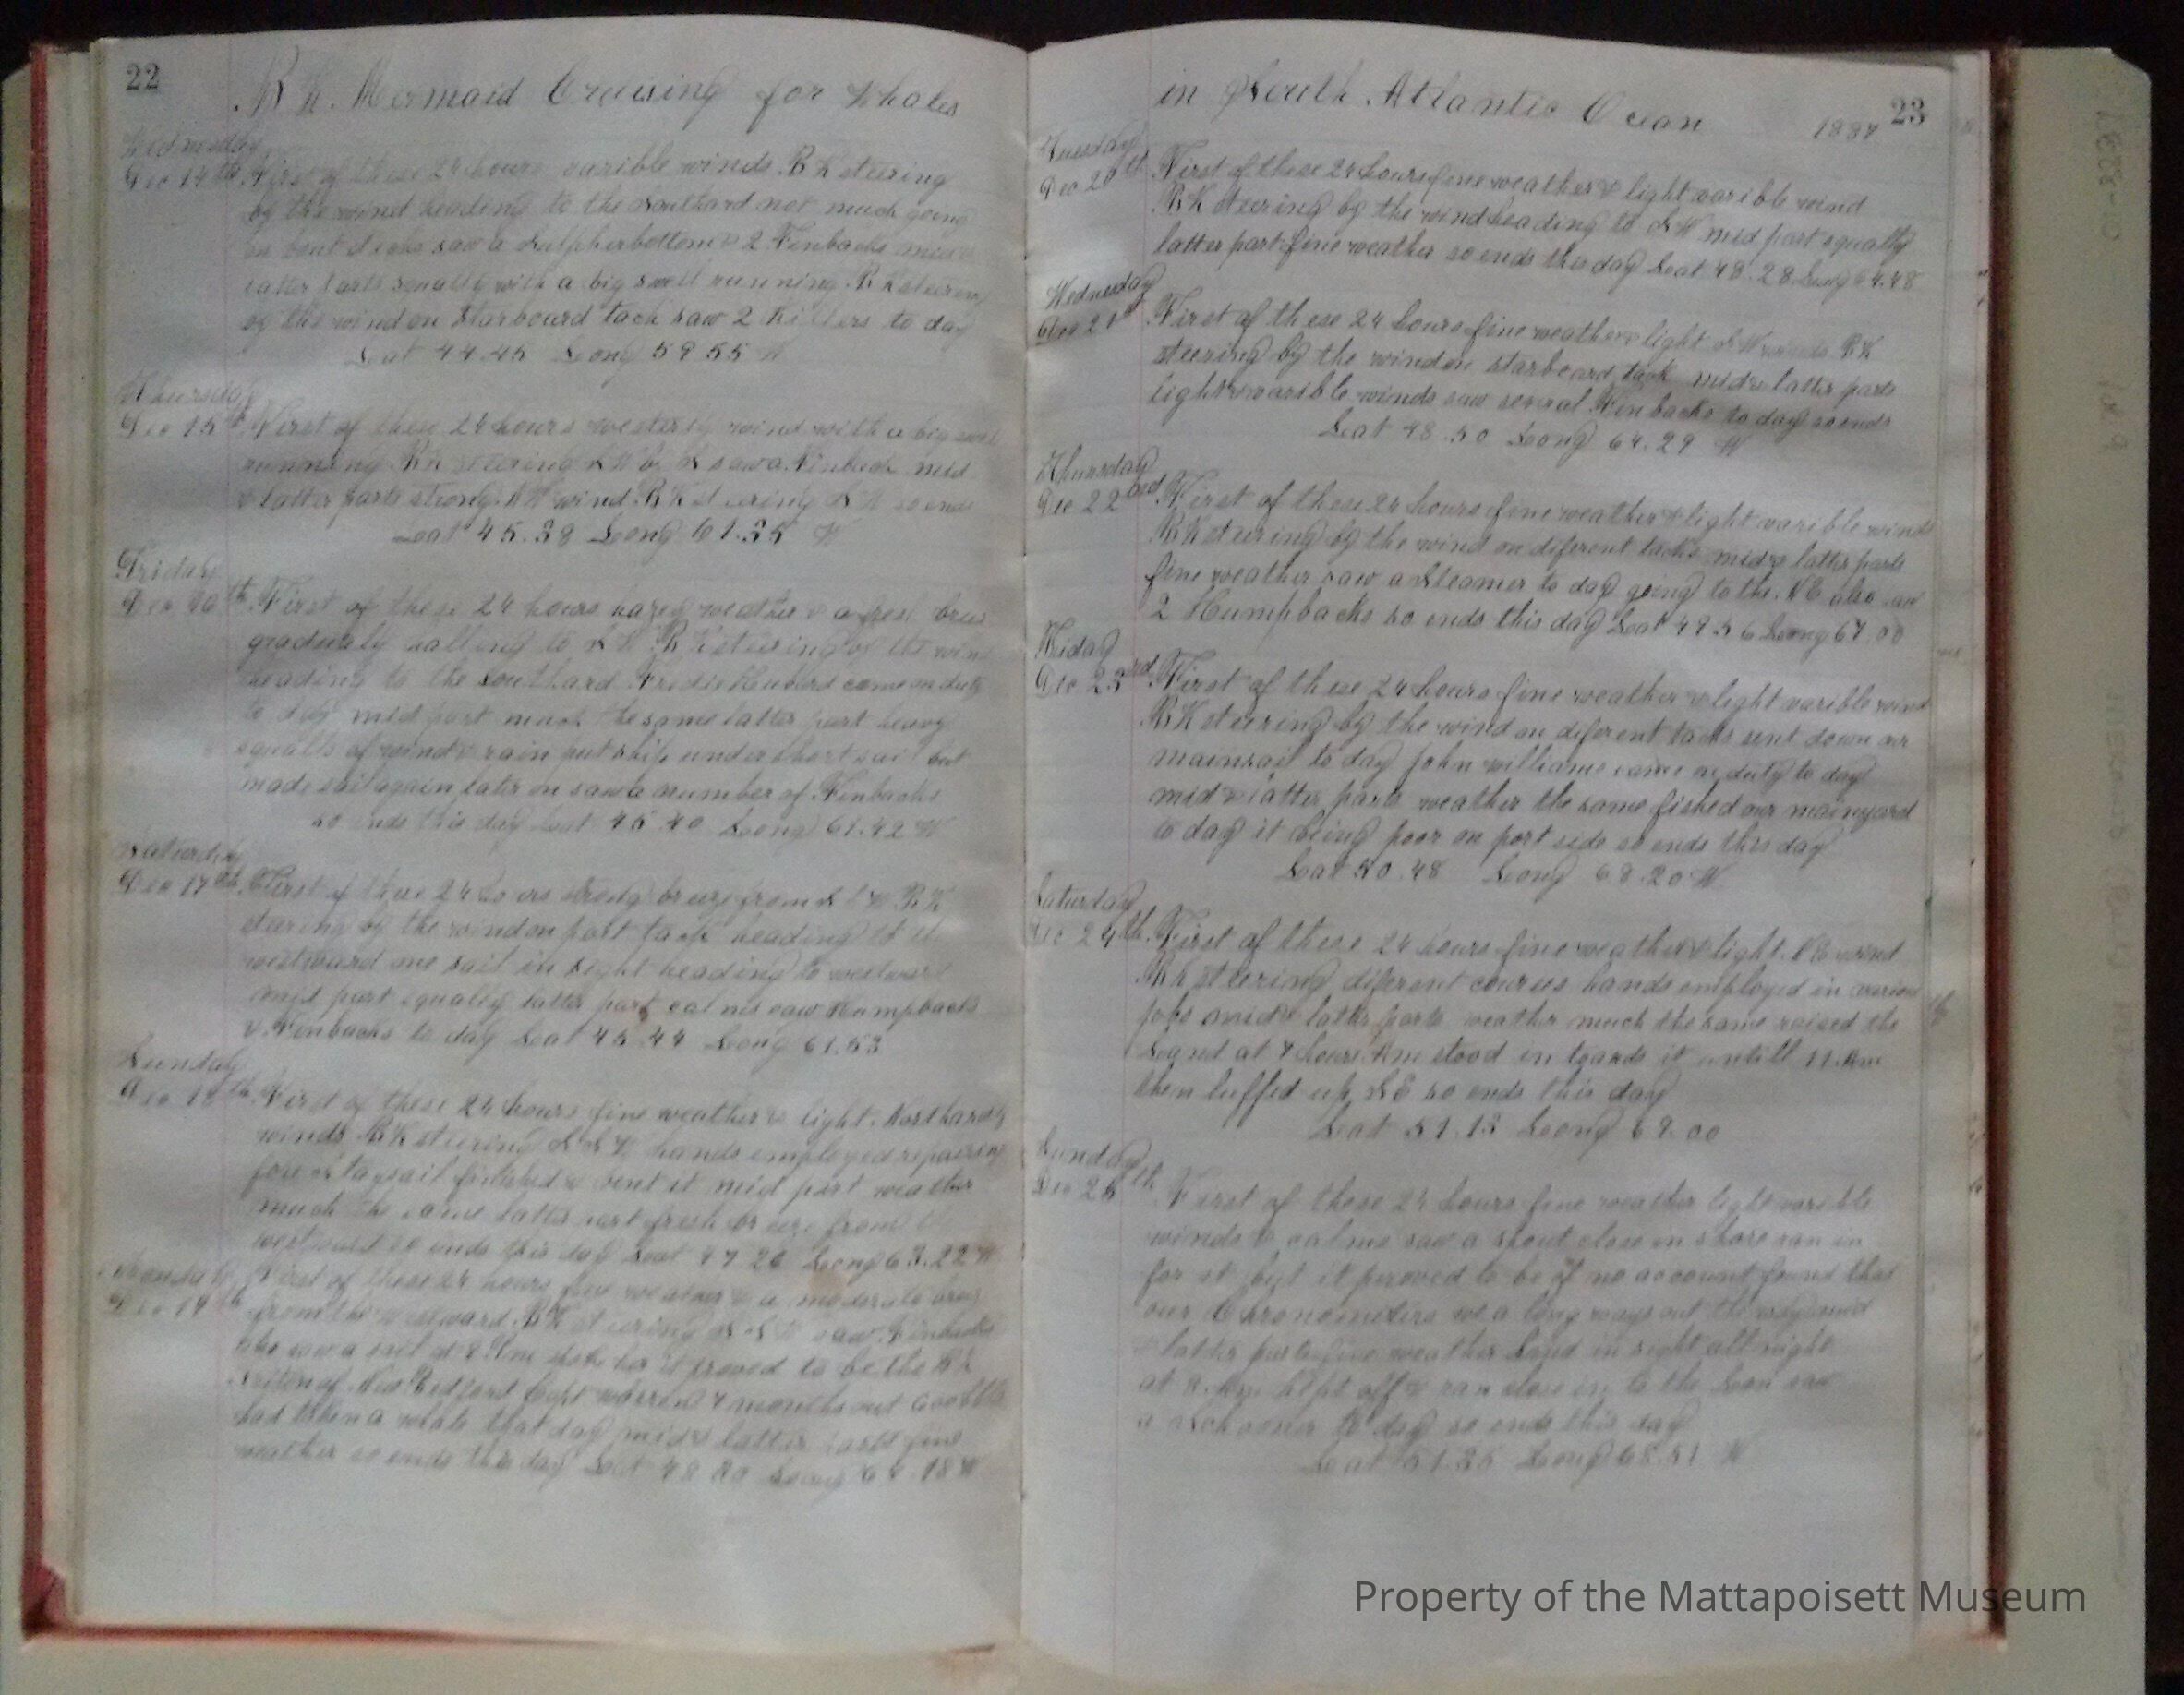 22
BK. Mermaid Cruising for Whales
Wednesday
Dec 14th First of these 24 hours varible winds BK steering
by the wind heading to the Southard not much going
on bent saw a Sulpherbottom & 2 Finbacks mid &
latter parts squally with a big swell running BK steering
by the wind on Starboard tack saw 2 Killers to day
Lat 44.45 Long 59 55 W
Thursday
Dec 15th First of these 24 hours westerly wind with a big swell
running BK steering SW by S saw a Finback mid
& latter parts strong wind BK steering SW so ends
Lat 45.38 Long 61.35 W
Friday
Dec 16th First of these 24 hours hazey weather & a fresh
gradualy to SW BK steering by the wind
heading to the Southard Fredie came on duty
to day mid part much the same latter part heavy
squalls of wind & rain put ship under short sail but
made sail again later on saw a number of Finbacks
so ends this day Lat 45 40 Long 61.42 W
Saturday
Dec 17th First of these 24 hours strong breeze from BK
stearing by the wind on port tack heading to the
westward one sail in sight heading to westward
mid part squaley latter part calms saw Humpbacks
& Finbacks to day Lat 45 44 Long 61.53
Sunday
Dec 18th First of these 24 hours fine weather & light Northardly
winds BK steering SSW hands employed repairing
fore staysail finished & bent it mid part weather
much the same latter part fresh breeze from the
westward so ends this day Lat 47 26 Long 63.22 W
Monday
Dec 19th First of these 24 hours fine weather & a moderate
from the westward BK steering SSW saw Finbacks
also saw a sail at spoke her it proved to be the BK
of New Bedford Capt 4 months out
had taken a whale that day mid & latter parts fine
weather so ends this day Lat 48 Long 64.18 W
in South Atlantic Ocean
1887 23
Tuesday
Dec 20th First of these 24 hours fine weather & light varible wind
BK steering by the wind heading to SW mid part squally
latter part fine weather so ends this day Lat 48.28 Long 64.48
Wednesday
Dec 21st First of these 24 hours fine weather & light SW winds BK
steering by the wind on starboard tack mid & latter parts
light & varible winds saw several Finbacks to day so ends
Lat 48.50 Long 64.29 W
Thursday
Dec 22nd First of these 24 hours fine weather & light varible winds
BK steering by the wind on diferent tacks mid & latter parts
fine weather saw a Steamer to day going to the NE also saw
2 Humpbacks so ends this day Lat 49 56 Long 67.00
Friday
Dec 23rd First of these 24 hours fine weather & light varible wind
BK steering by the wind on diferent tacks sent down our
mainsail to day John williams came on duty to day
mid & latter parts weather the same fished our mainyard
to day it being poor on port side so ends this day
Lat 50.48 Long 68.20 W
Saturday
Dec 24th First of these 24 hours fine weather & light wind
BK steering diferent courses hands employed in various
jobs mid & latter parts weather much the same raised the
Legnd at 4 hours Am stood in towards it untill 11 Am
then luffed up SE so ends this day
Lat 51.13 Long 69.00
Sunday
Dec 25th First of these 24 hours fine weather light varible
winds & calms saw a spout close in shore ran in
for it but it proved to be of no account found that
our Chronometers a long ways out the way mid
& latter parts fine weather Land in sight all night
at 8 Am kept off & ran close in to the Lan saw
a Schooner to day so ends this day
Lat 51.35 Long 68.51 W
Property of the Mattapoisett Museum